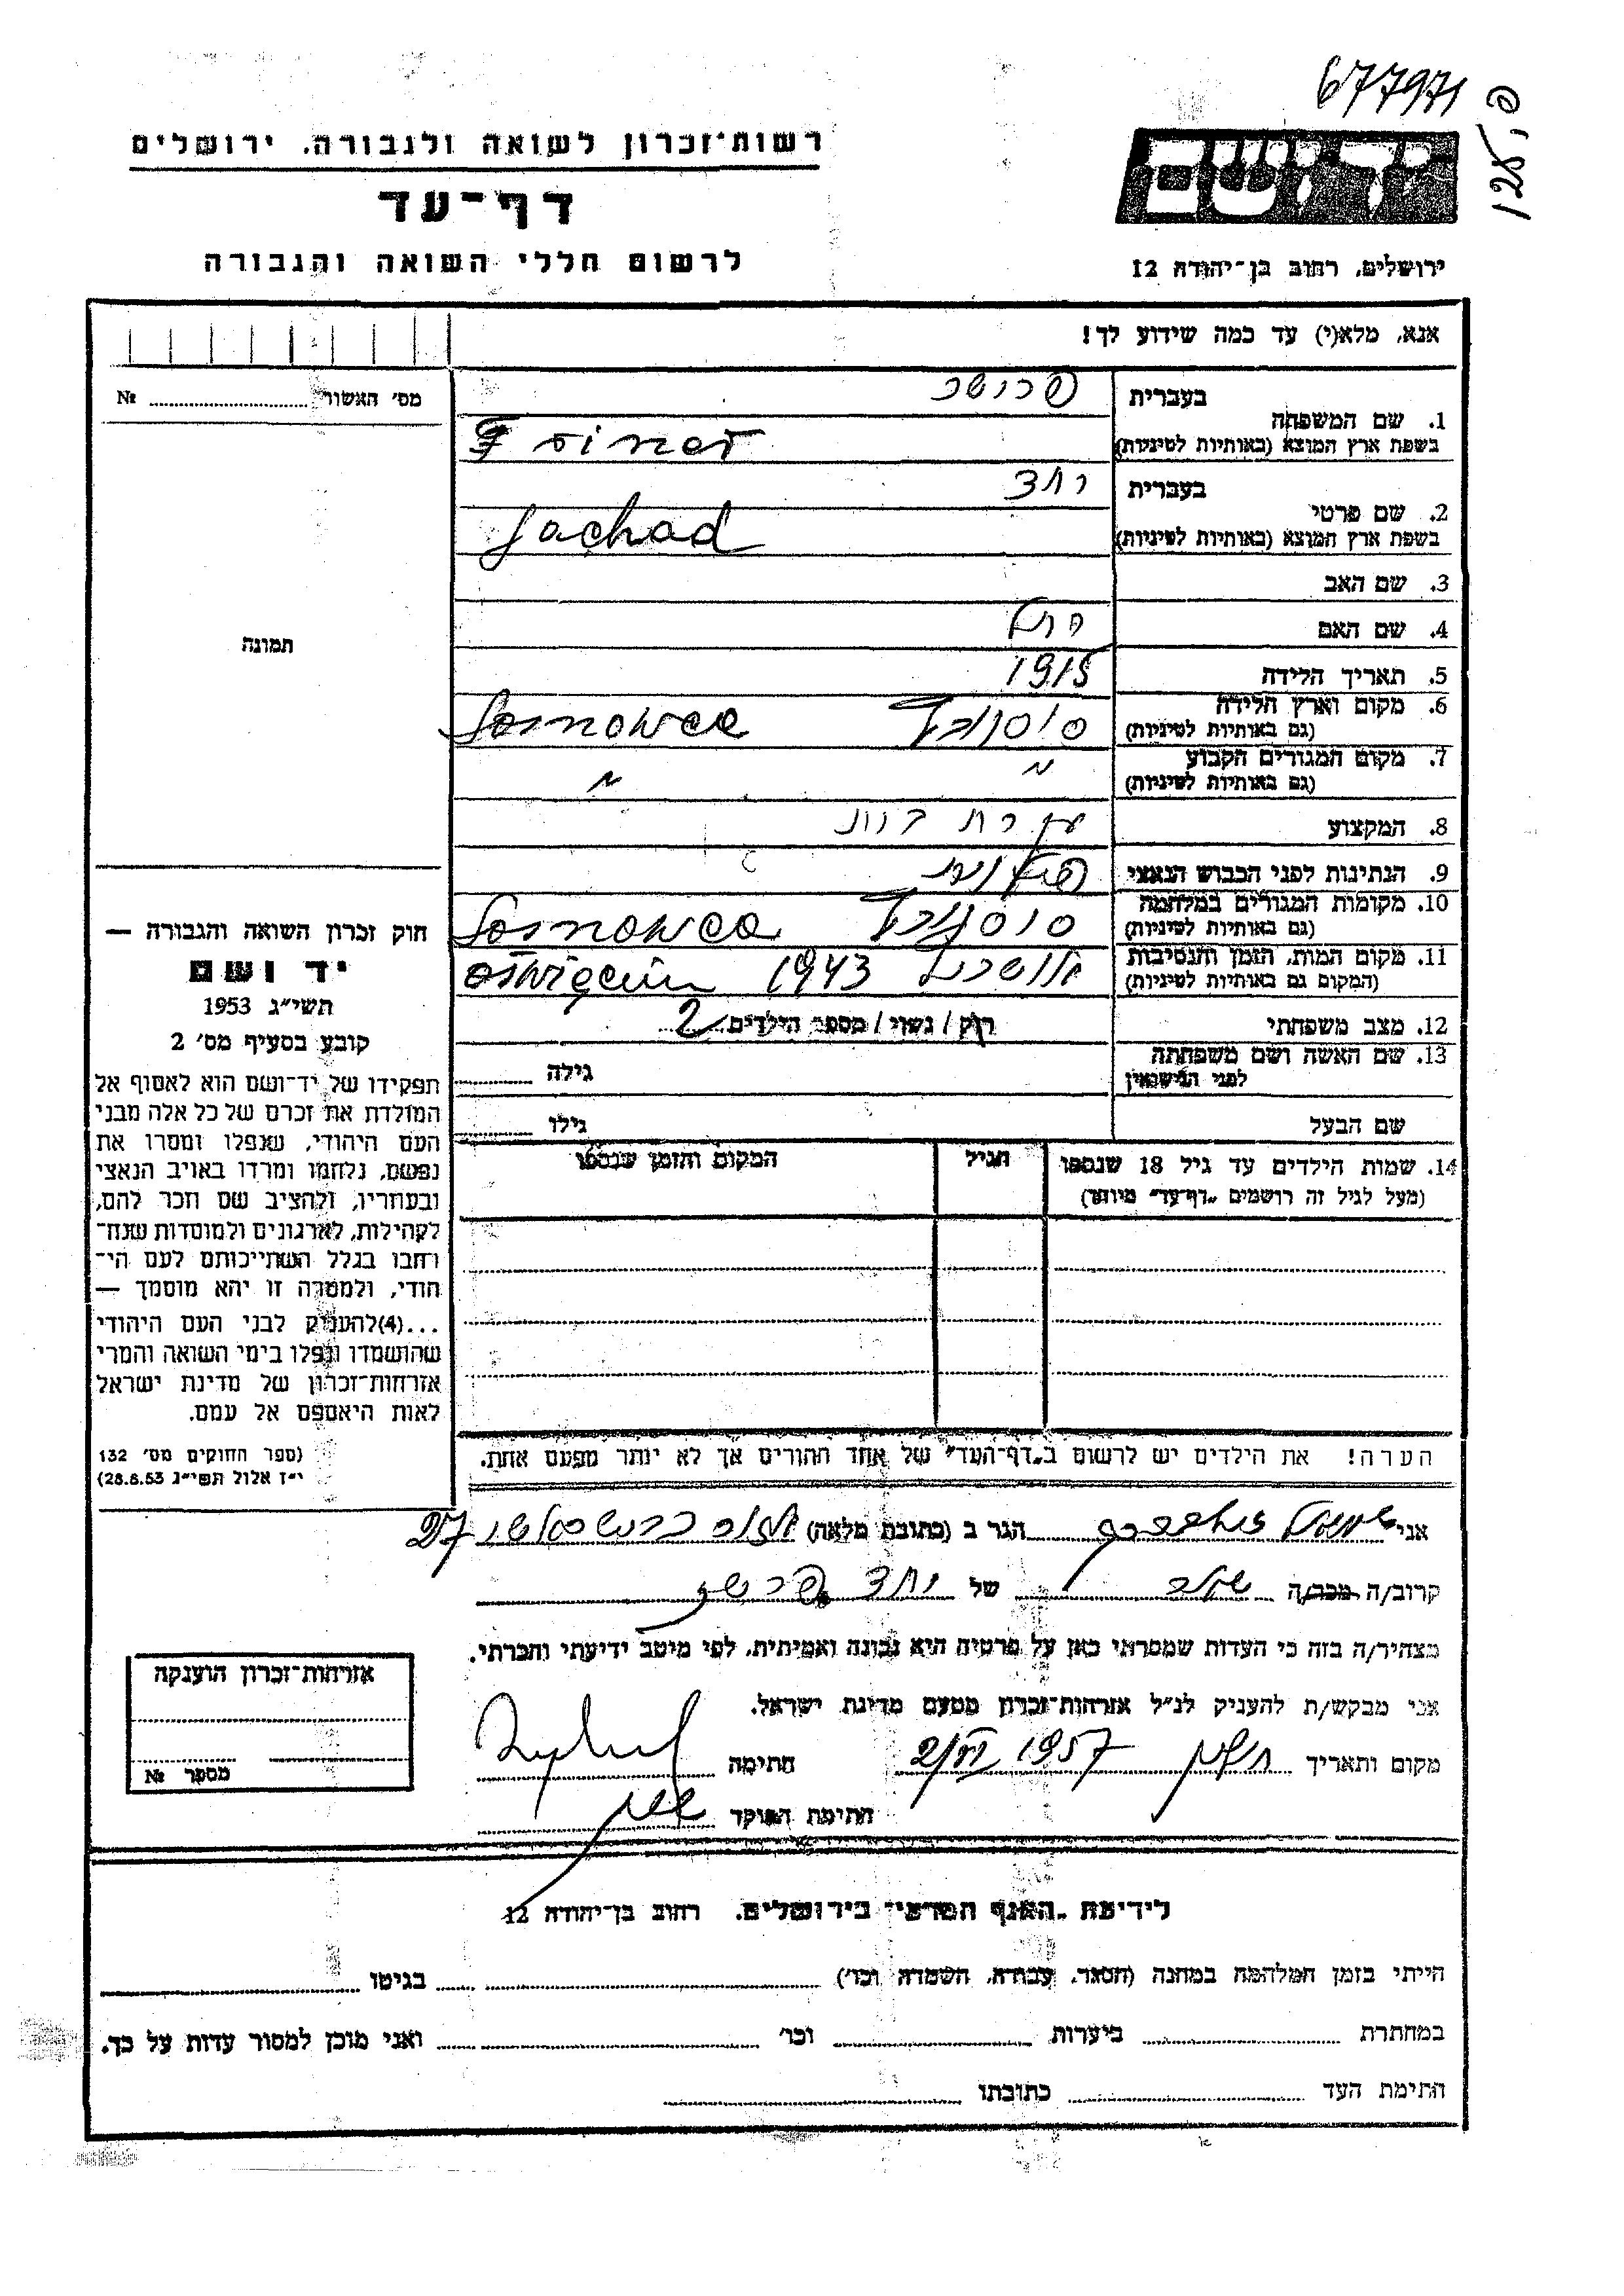 677971
רשות־זכרון לשואה ולגבורה, ירושלים
יד ושם
דף־עד
לרשום חללי השואה והגבורה
ירושלים, רחוב בן־יהודה 12
אנא, מלא(י) עד כמה שידוע לך!
מס׳ האשור № 
1. שם המשפחה
בעברית
בשפת ארץ המוצא (באותיות לטיניות)
2. שם פרטי
בעברית
בשפת ארץ המוצא (באותיות לטיניות) Jachad
3. שם האב
4. שם האם
5. תאריך הלידה 1915
6. מקום וארץ הלידה
(גם באותיות לטיניות) סוסנוביץ Sosnowec
7. מקום המגורים הקבוע
(גם באותיות לטיניות) " "
8. המקצוע עקרת בית
9. הנתינות לפני הכבוש הנאצי פולנית
10. מקומות המגורים במלחמה
(גם באותיות לטיניות) סוסנוביץ Sosnowec
11. מקום המות, הזמן והנסיבות
(המקום גם באותיות לטיניות) אושביץ 1943
12. מצב משפחתי רוק / נשוי / מספר הילדים 2
13. שם האשה ושם משפחתה
לפני הנישואין
גילה
שם הבעל
גילו
תמונה
חוק זכרון השואה והגבורה —
יד ושם
תשי״ג 1953
קובע בסעיף מס׳ 2
תפקידו של יד־ושם הוא לאסוף אל
המולדת את זכרם של כל אלה מבני
העם היהודי, שנפלו ומסרו את
נפשם, נלחמו ומרדו באויב הנאצי
ובעוזריו, ולהציב שם וזכר להם,
לקהילות, לארגונים ולמוסדות שנח־
רבו בגלל השתייכותם לעם הי־
הודי, ולמטרה זו יהא מוסמך —
...(4)להעניק לבני העם היהודי
שהושמדו ונפלו בימי השואה והמרי
אזרחות־זכרון של מדינת ישראל
לאות היאספם אל עמם.
(ספר החוקים מס׳ 132
י״ז אלול תשי״ג 28.8.53)
14. שמות הילדים עד גיל 18 שנספו
(מעל לגיל זה רושמים „דף־עד״ מיוחד)
הגיל
המקום והזמן שנספו
הערה! את הילדים יש לרשום ב„דף־העד״ של אחד ההורים אך לא יותר מפעם אחת.
אני שמואל הגר ב (כתובת מלאה) 27
קרוב/ה מכר/ה של
מצהיר/ה בזה כי העדות שמסרתי כאן על פרטיה היא נכונה ואמיתית, לפי מיטב ידיעתי והכרתי.
אני מבקש/ת להעניק לנ״ל אזרחות־זכרון מטעם מדינת ישראל.
מקום ותאריך 2/VI 1957 חתימה
חתימת הפוקד
אזרחות־זכרון הוענקה
מספר №
לידיעת „האגף המדעי״ בירושלים, רחוב בן־יהודה 12
הייתי בזמן המלחמה במחנה (הסגר, עבודה, השמדה וכו׳) בגיטו
במחתרת ביערות וכו׳ ואני מוכן למסור עדות על כך.
חתימת העד כתובתו